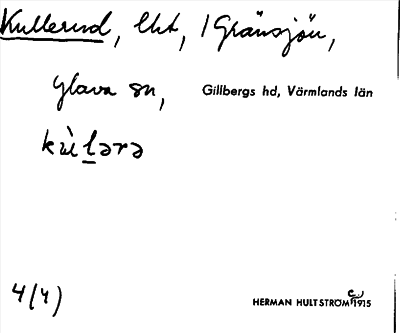 Kullerud, lht, / Gränsjön,
Glava sn, Gillbergs hd, Värmlands län
kùlərə
4(4)
HERMAN HULTSTRÖM 1915